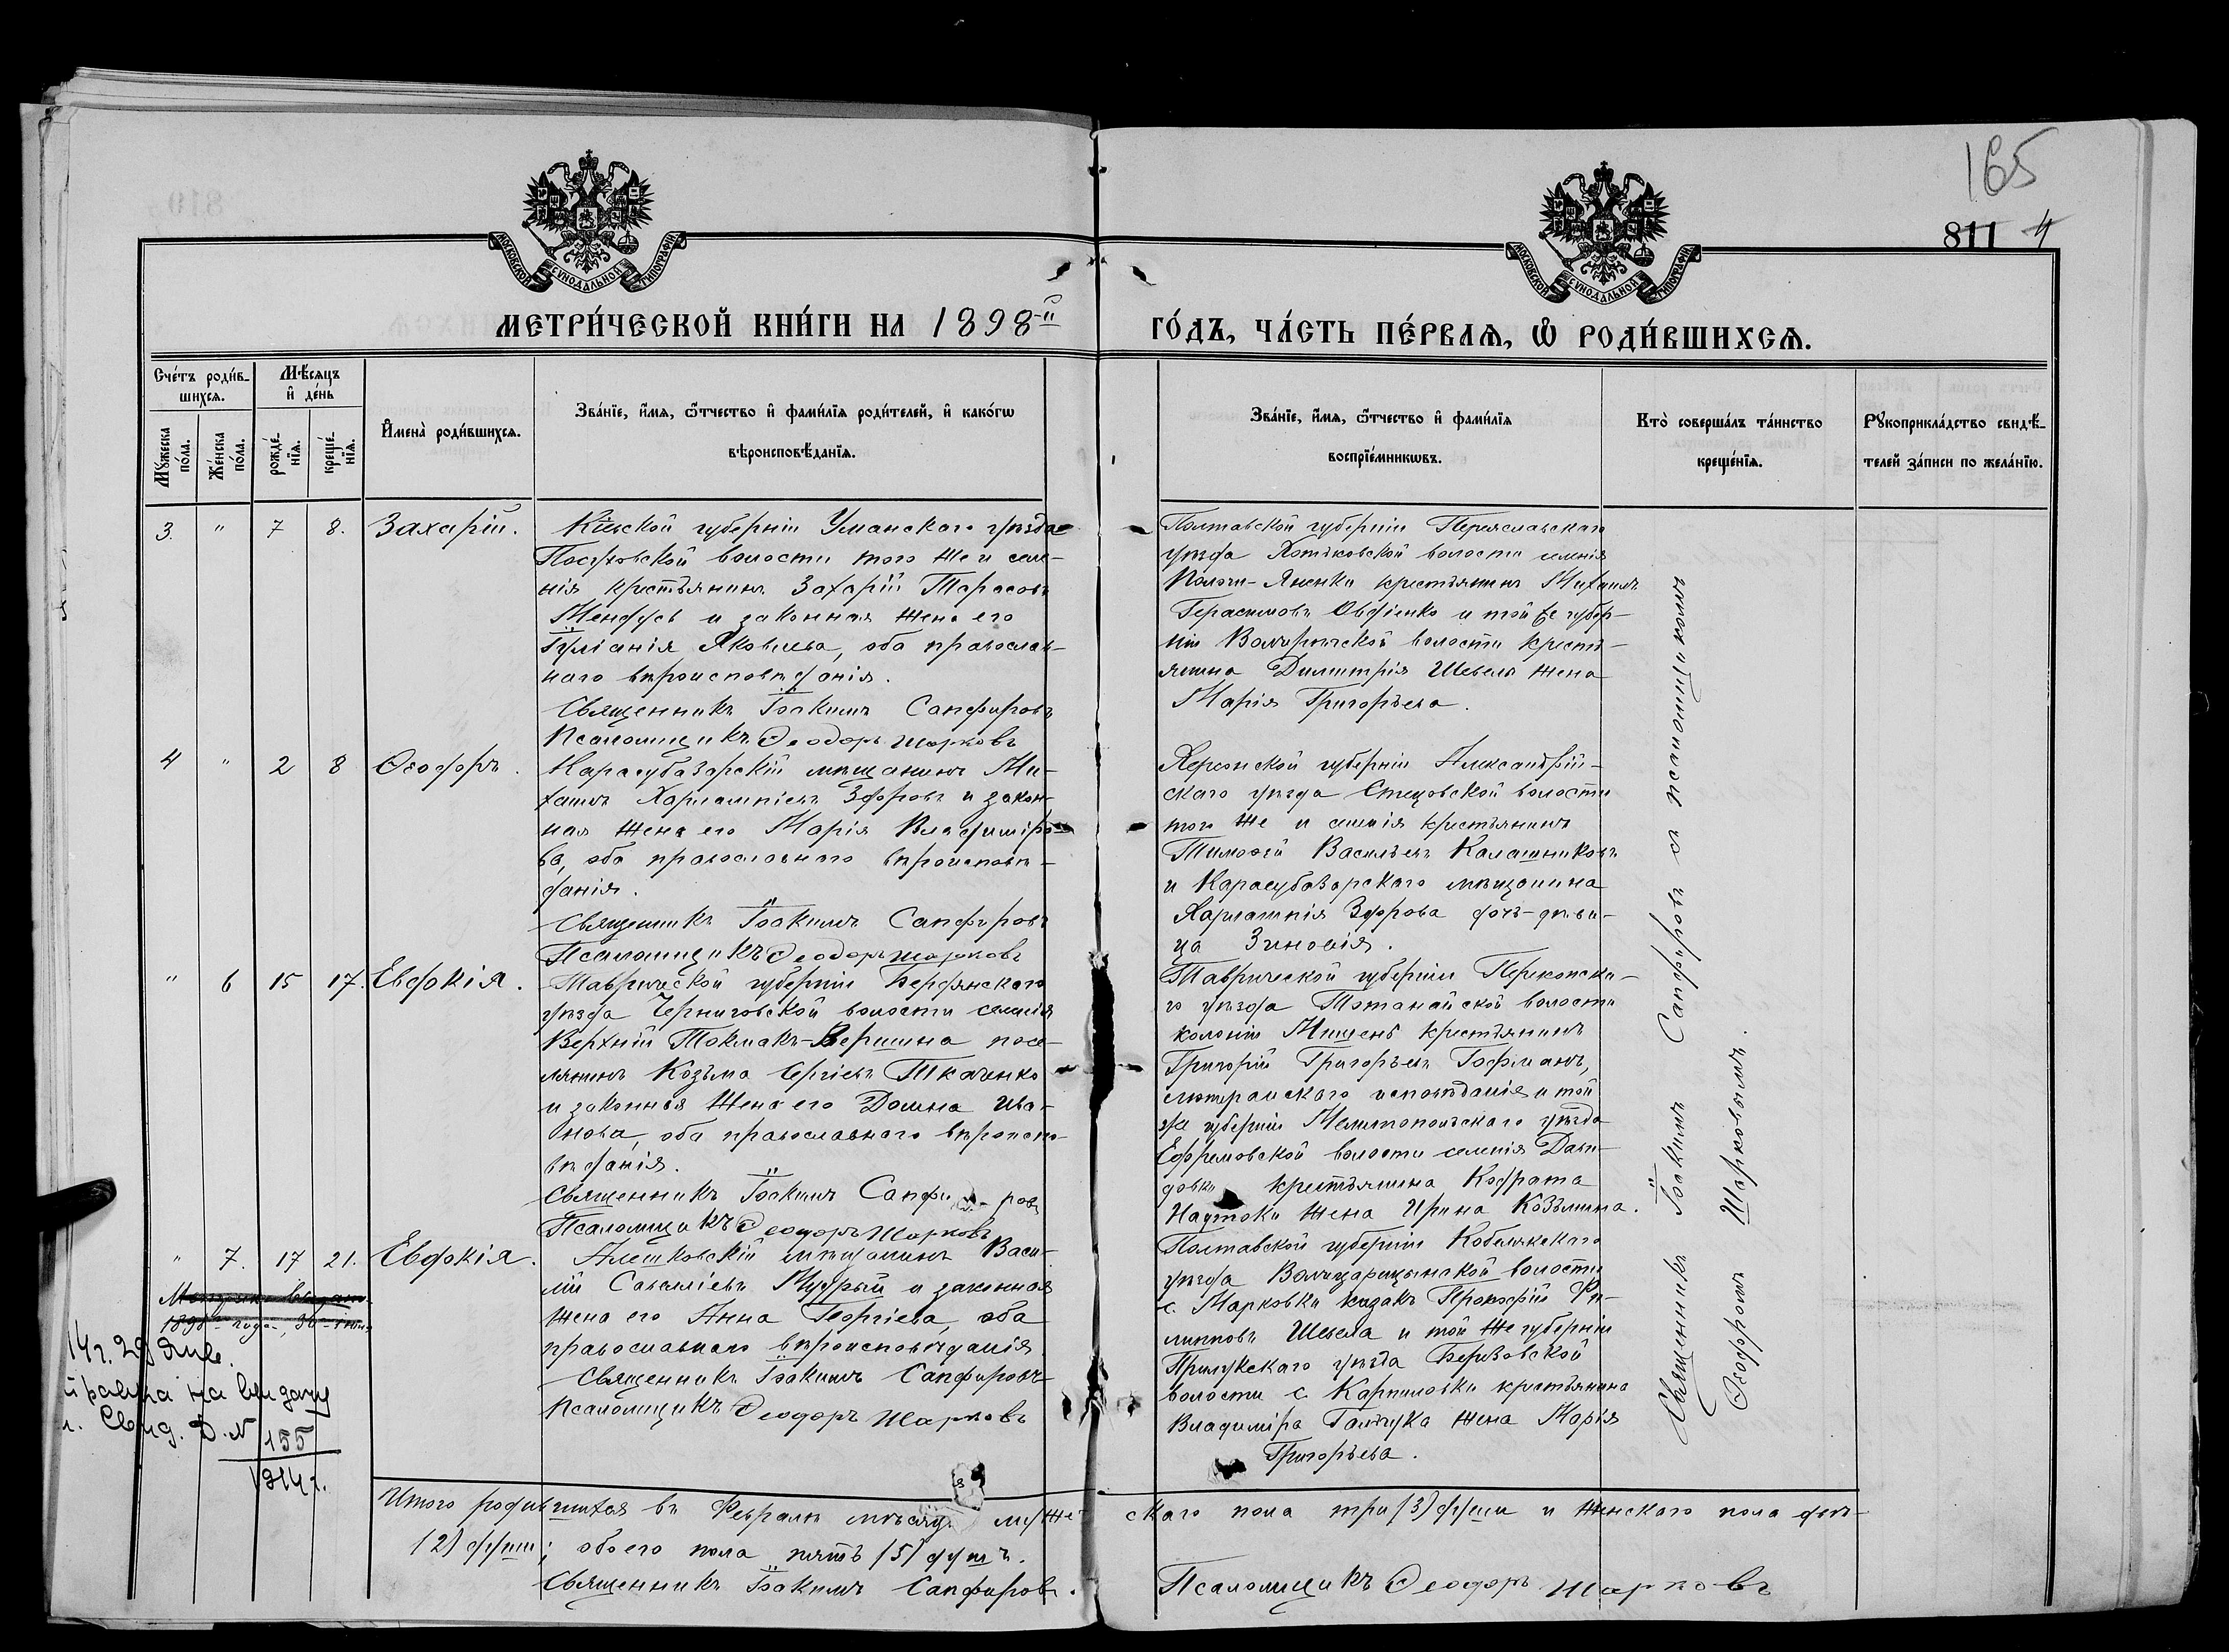 165
811 4
МОСКОВСКОЙ СУНОДАЛЬНОЙ ТИПОГРАФІИ
МОСКОВСКОЙ СУНОДАЛЬНОЙ ТИПОГРАФІИ
МЕТРИ́ЧЕСКОЙ КНИ́ГИ НА 1898-й
ГО́ДЪ, ЧА́СТЬ ПЕ́РВАѦ, Ѽ РОДИ́ВШИХСѦ.
Сче́тъ роди́в-
шихсѧ.
Мѣ́сѧцъ
и҆ де́нь
Мꙋ́жеска
по́ла.
Же́нска
по́ла.
рожде́-
нїѧ.
креще́-
нїѧ.
И҆мена̀ роди́вшихсѧ.
Зва́нїе, и҆́мѧ, ѻ҆́тчество и҆ фами́лїѧ роди́телей, и҆ како́гѡ
вѣроисповѣ́данїѧ.
Зва́нїе, и҆́мѧ, ѻ҆́тчество и҆ фами́лїѧ
воспрїе́мникѡвъ.
Кто̀ соверша́лъ та́инство
креще́нїѧ.
Рꙋкоприкла́дство свидѣ́-
телей за́писи по жела́нїю.
3. " 7 8. Захарій.
Кіевской губерніи Уманскаго уѣзда
волости того же и селе-
нія крестьянинъ Захарій Тарасовъ
и законная жена его
Іуліанія Яковлева, оба православ-
наго вѣроисповѣданія.
Священникъ Іоакимъ Сапфировъ
Псаломщикъ Ѳеодоръ Шарковъ
Полтавской губерніи Переяславскаго
уѣзда волости селенія
крестьянинъ Михаилъ
Герасимовъ Овдіенко и той же губер-
ніи волости кресть-
янина Димитрія Шевель жена
Марія Григорьева.
4 " 2 8 Ѳеодоръ.
Карасубазарскій мѣщанинъ Ми-
хаилъ Харлампіевъ Здоровъ и закон-
ная жена его Марія Владиміро-
ва, оба православнаго вѣроисповѣ-
данія.
Священникъ Іоакимъ Сапфировъ
Псаломщикъ Ѳеодоръ Шарковъ
Херсонской губерніи Александрій-
скаго уѣзда Стецовской волости
того же и селенія крестьянинъ
Тимоѳей Васильевъ Калашниковъ
и Карасубазарскаго мѣщанина
Харлампія Здорова дочь-дѣви-
ца Зиновія.
" 6 15 17. Евдокія.
Таврической губерніи Бердянскаго
уѣзда Черниговской волости селенія
Верхній Токмакъ-Вершина посе-
лянинъ Козьма Сергіевъ Ткаченко
и законная жена его Домна Ива-
нова, оба православнаго вѣроиспо-
вѣданія.
Священникъ Іоакимъ Сапфировъ
Псаломщикъ Ѳеодоръ Шарковъ
Таврической губерніи Перекопска-
го уѣзда волости
колоніи крестьянинъ
Григорій Григорьевъ Гофманъ,
лютеранскаго исповѣданія и той
же губерніи Мелитопольскаго уѣзда
Ефремовской волости селенія Давы-
довки крестьянина Кодрата
жена Ирина Козьмина.
" 7. 17 21. Евдокія.
Алешковскій мѣщанинъ Васи-
лій Савеліевъ Мудрый и законная
жена его Анна Георгіева, оба
православнаго вѣроисповѣданія.
Священникъ Іоакимъ Сапфировъ
Псаломщикъ Ѳеодоръ Шарковъ
Полтавской губерніи Кобелякскаго
уѣзда волости
с. Марковки казакъ Прокофій Фи-
липповъ Шевела и той же губерніи
Прилукскаго уѣзда Березовской
волости с. Карпиловки крестьянина
Владиміра жена Марія
Григорьева.
Священникъ Іоакимъ Сапфировъ съ псаломщикомъ
Ѳеодоромъ Шарковымъ.
14 г. 29
на выдачу
Свид. Д. N 155
1914 г.
Итого родившихся въ Февралѣ мѣсяцѣ мужескаго пола три (3) души и женскаго пола двѣ
(2) души; обоего пола пять (5) душъ.
Священникъ Іоакимъ Сапфировъ.
Псаломщикъ Ѳеодоръ Шарковъ